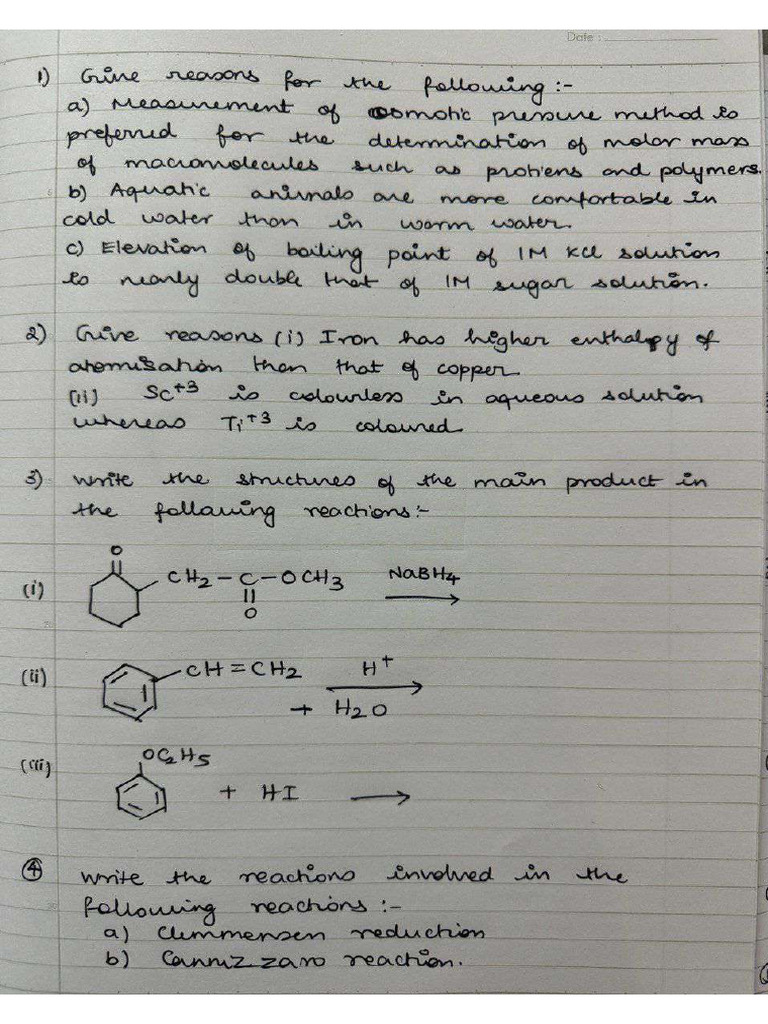 Date :
1) Give reasons for the following :-
a) Measurement of osmotic pressure method is
preferred for the determination of molar mass
of macromolecules such as protiens and polymers.
b) Aquatic animals are more comfortable in
cold water than in warm water.
c) Elevation of boiling point of 1M KCl solution
is nearly double that of 1M sugar solution.
2) Give reasons (i) Iron has higher enthalpy of
atomisation than that of copper
(ii) Sc+3 is colourless in aqueous solution
whereas Ti+3 is coloured
3) Write the structures of the main product in
the following reactions:-
O
(i) CH2 - C - OCH3 NaBH4
O
(ii) CH = CH2 H+
+ H2O
OC2H5
(iii) + HI
4 Write the reactions involved in the
following reactions :-
a) Clemmensen reduction
b) Cannizzaro reaction.